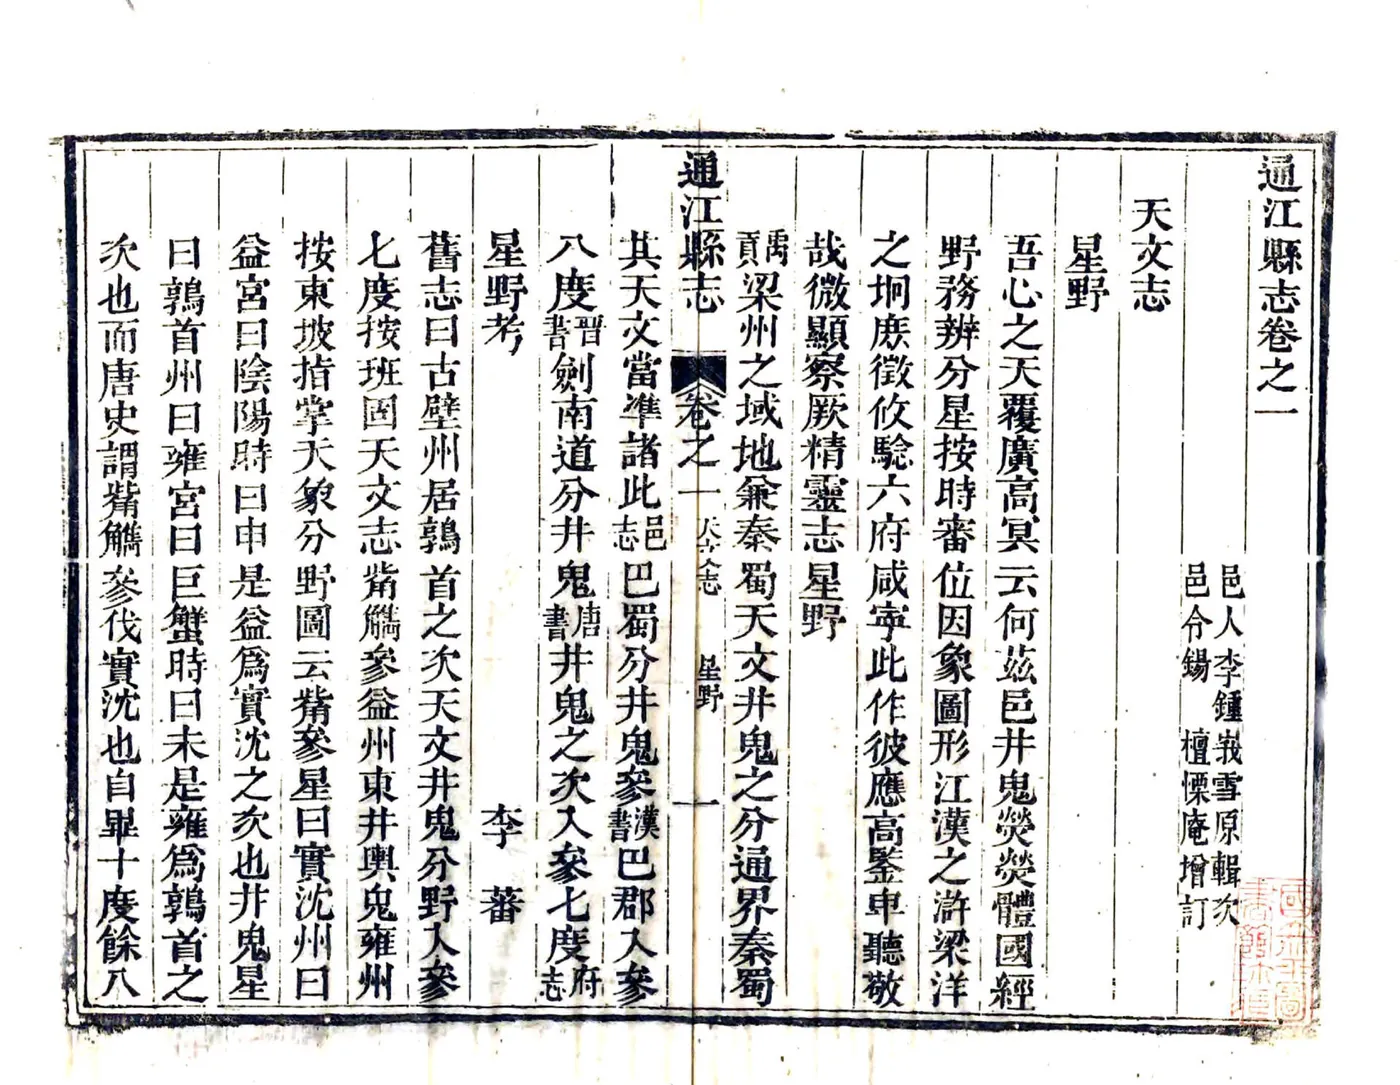 通江縣志卷之一
邑人李鍾峩雪原輯次
邑令錫檀慄庵增訂
天文志
星野
吾心之天覆廣高冥云何茲邑井鬼熒熒體國經
野務辨分星按時審位因象圖形江漢之滸梁洋
之坰庶徵攸驗六府咸寧此作彼應高鑒卑聽敬
哉微顯察厥精靈志星野
禹貢梁州之域地兼秦蜀天文井鬼之分通界秦蜀
通江縣志 卷之一 天文志 星野 一
其天文當準諸此邑志巴蜀分井鬼參漢書巴郡入參
八度晉書劍南道分井鬼唐書井鬼之次入參七度府志
星野考 李蕃
舊志曰古壁州居鶉首之次天文井鬼分野入參
七度按班固天文志觜觿參益州東井輿鬼雍州
按東坡指掌天象分野圖云觜參星曰實沈州曰
益宮曰陰陽時曰申是益爲實沈之次也井鬼星
曰鶉首州曰雍宮曰巨蟹時曰未是雍爲鶉首之
次也而唐史謂觜觿參伐實沈也自畢十度餘八